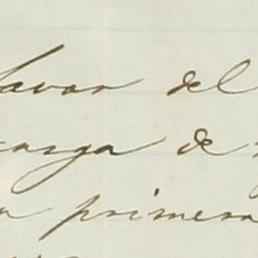 favor del
carga de
primera